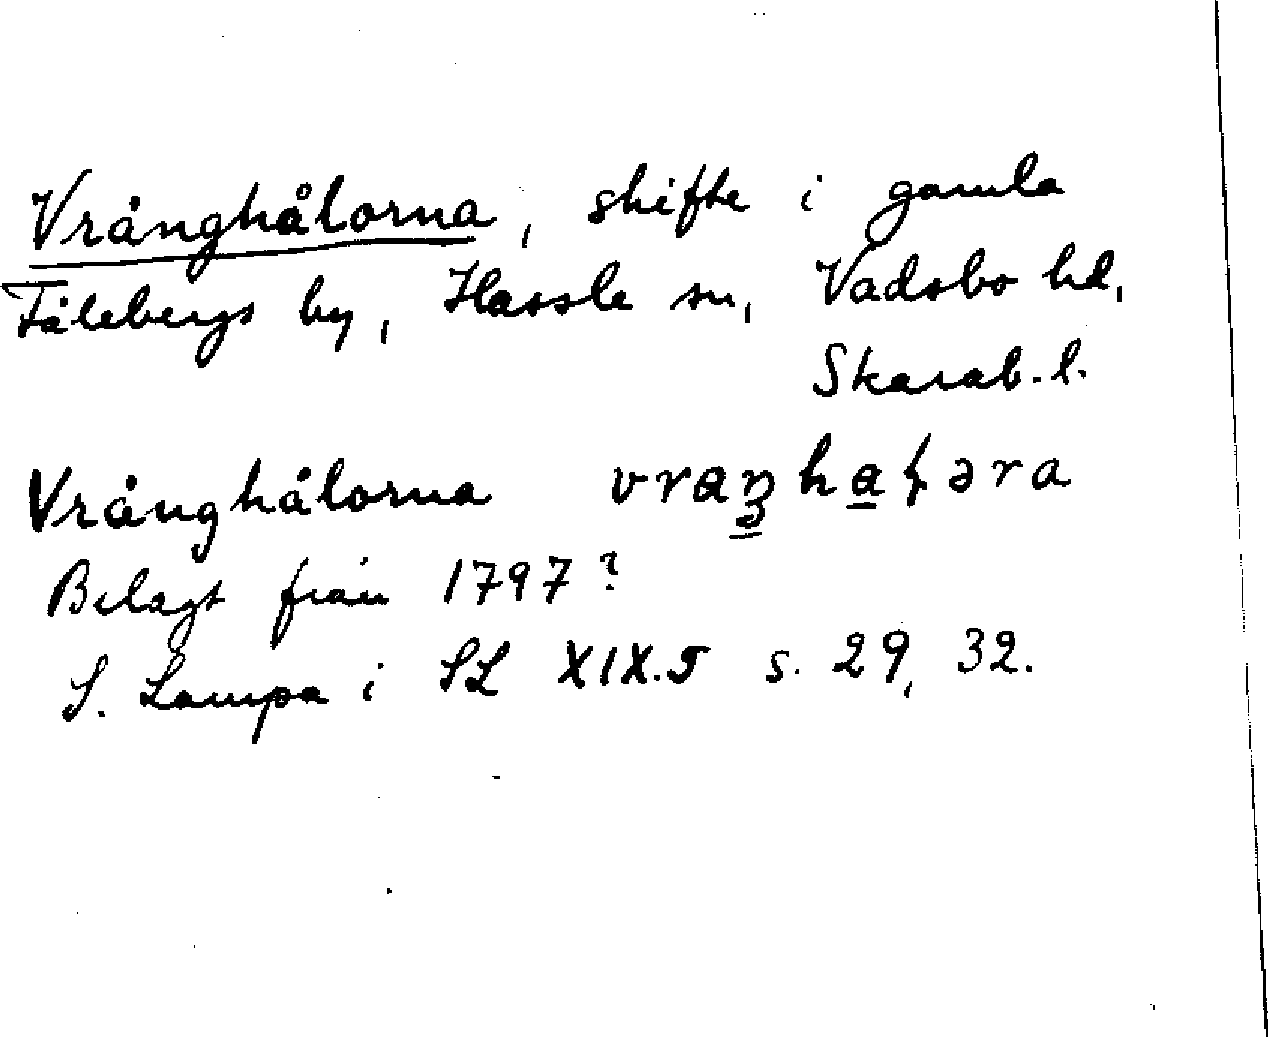 Vrånghålorna, skifte i gamla
Fålebergs by, Hassle sn, Vadsbo hd,
Skarab. l.
Vrånghålorna
Belagt från 1797?
S. Lampa i SL XIX.5 s. 29, 32.